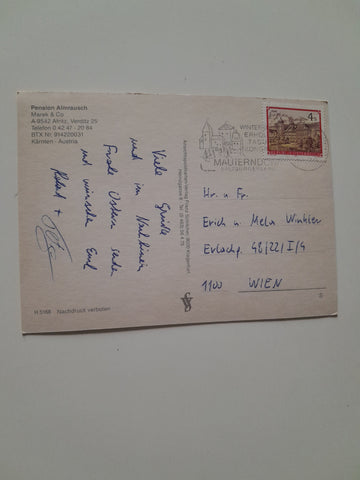 Pension Almrausch
Marek & Co
A-9542 Afritz, Verditz 25
Telefon 0 42 47 - 20 84
BTX Nr. 914220031
Kärnten - Austria
Viele Grüße
und im Nachhinein
Frohe Ostern senden
und wünschen Euch
Robert +
Ansichtskartenverlag Franz Schilcher, 9020 Klagenfurt
WINTER
ERHOL
MAUTERNDORF
4
Hr. u. Fr.
Erich u. Mela Winkler
Erlachg. 48/22/I/4
1100 WIEN
H 5168 Nachdruck verboten